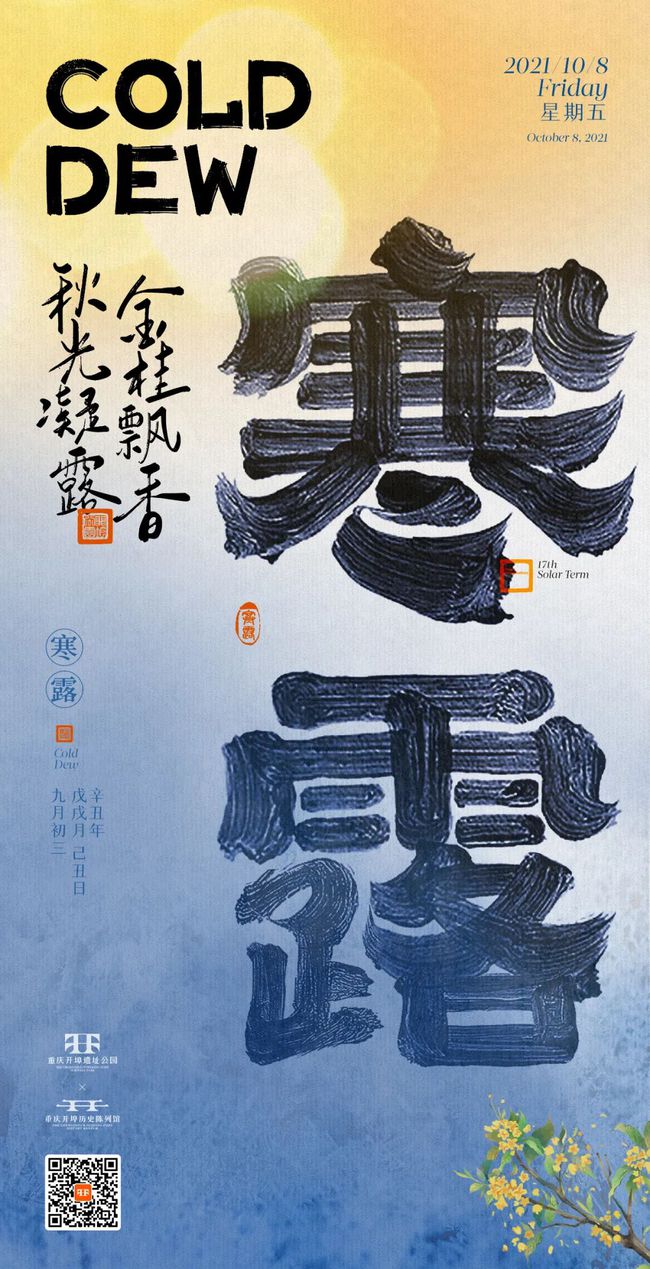 COLD
DEW
2021/10/8
Friday
星期五
October 8, 2021
金桂飘香
秋光凝露
寒
露
17th
Solar Term
寒露
寒
露
Cold
Dew
辛丑年
戊戌月 己丑日
九月初三
重庆开埠遗址公园
×
重庆开埠历史陈列馆